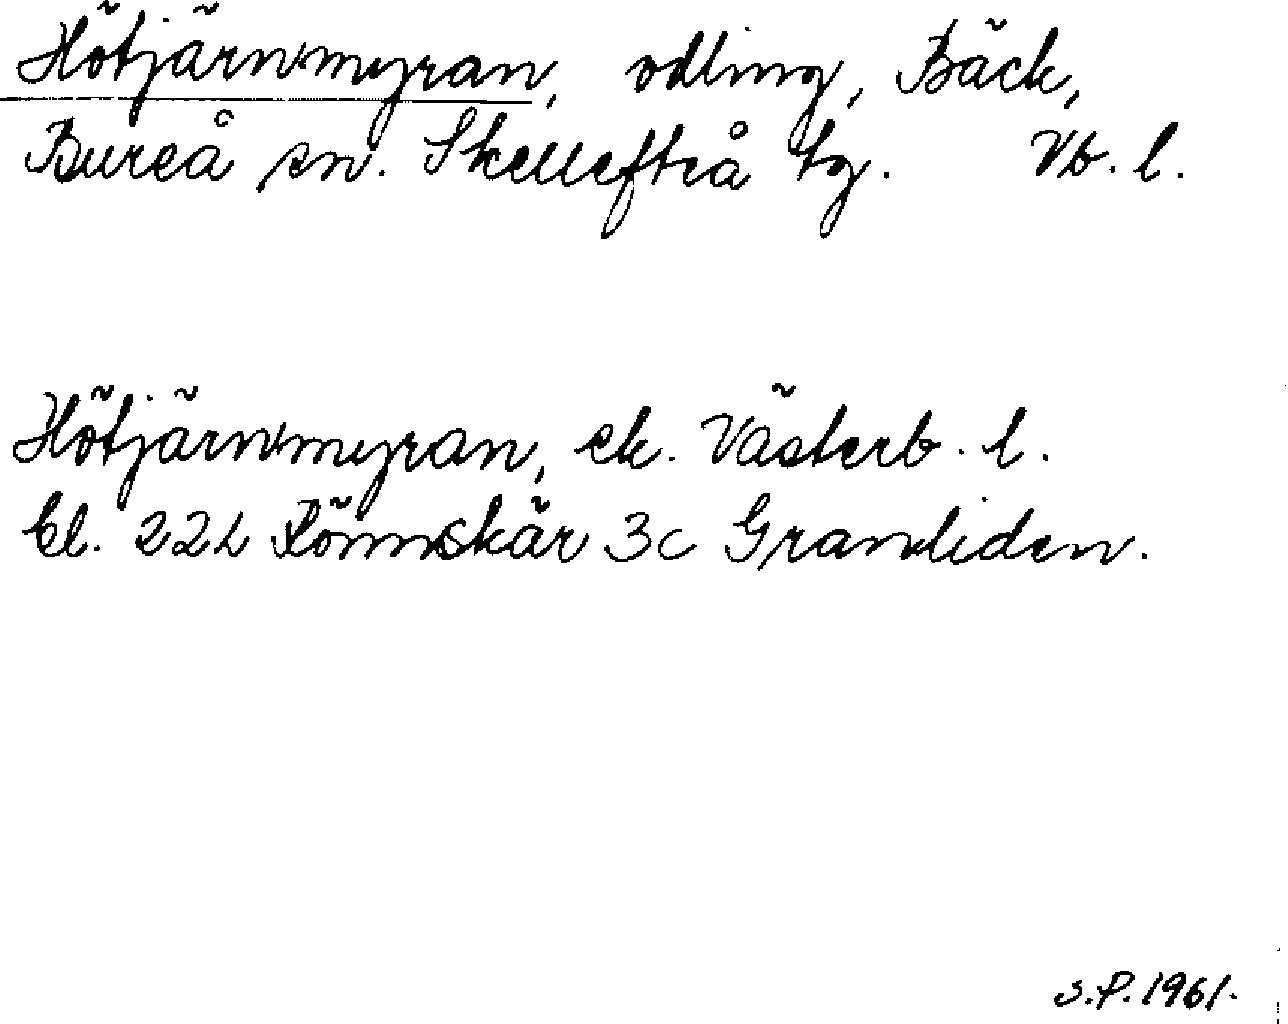 Hötjärnmyran, odling, Bäck,
Bureå sn. Skellefteå tg. Vb. l.
Hötjärnmyran, ek. Västerb. l.
bl. 22L Rönnskär 3c Granliden.
S.P. 1961.